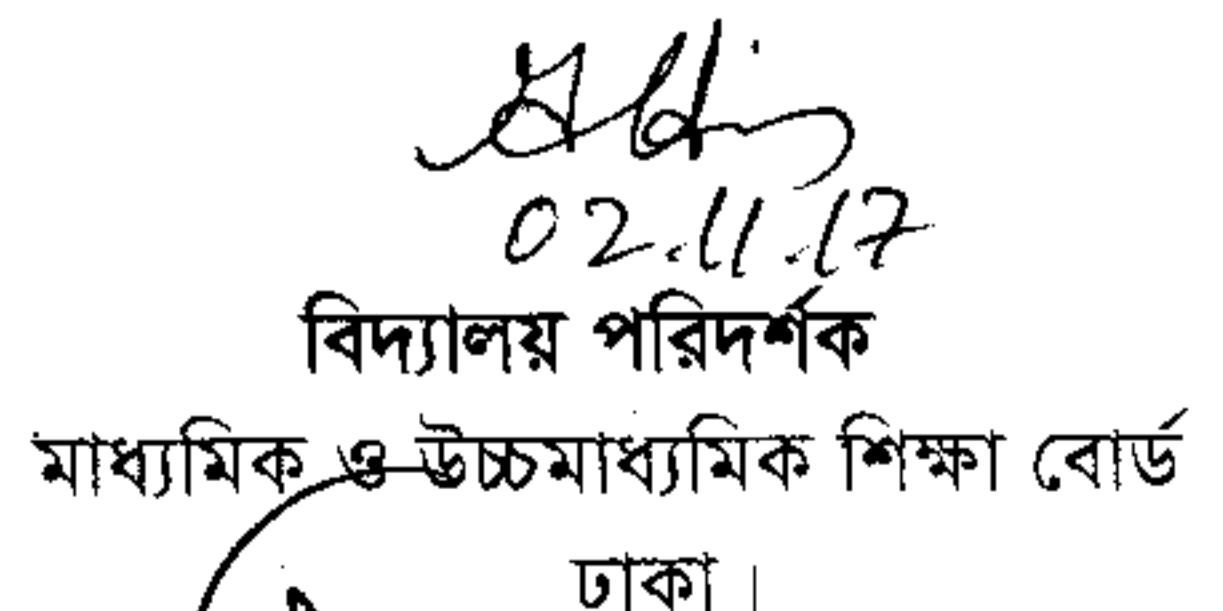 02.11.17
বিদ্যালয় পরিদর্শক
মাধ্যমিক ও উচ্চমাধ্যমিক শিক্ষা বোর্ড
ঢাকা।